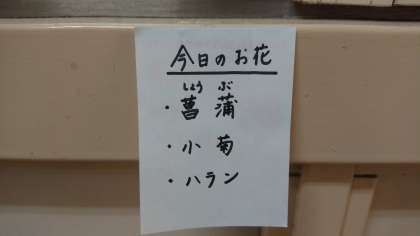 今日のお花
しょうぶ
・菖蒲
・小菊
・ハラン